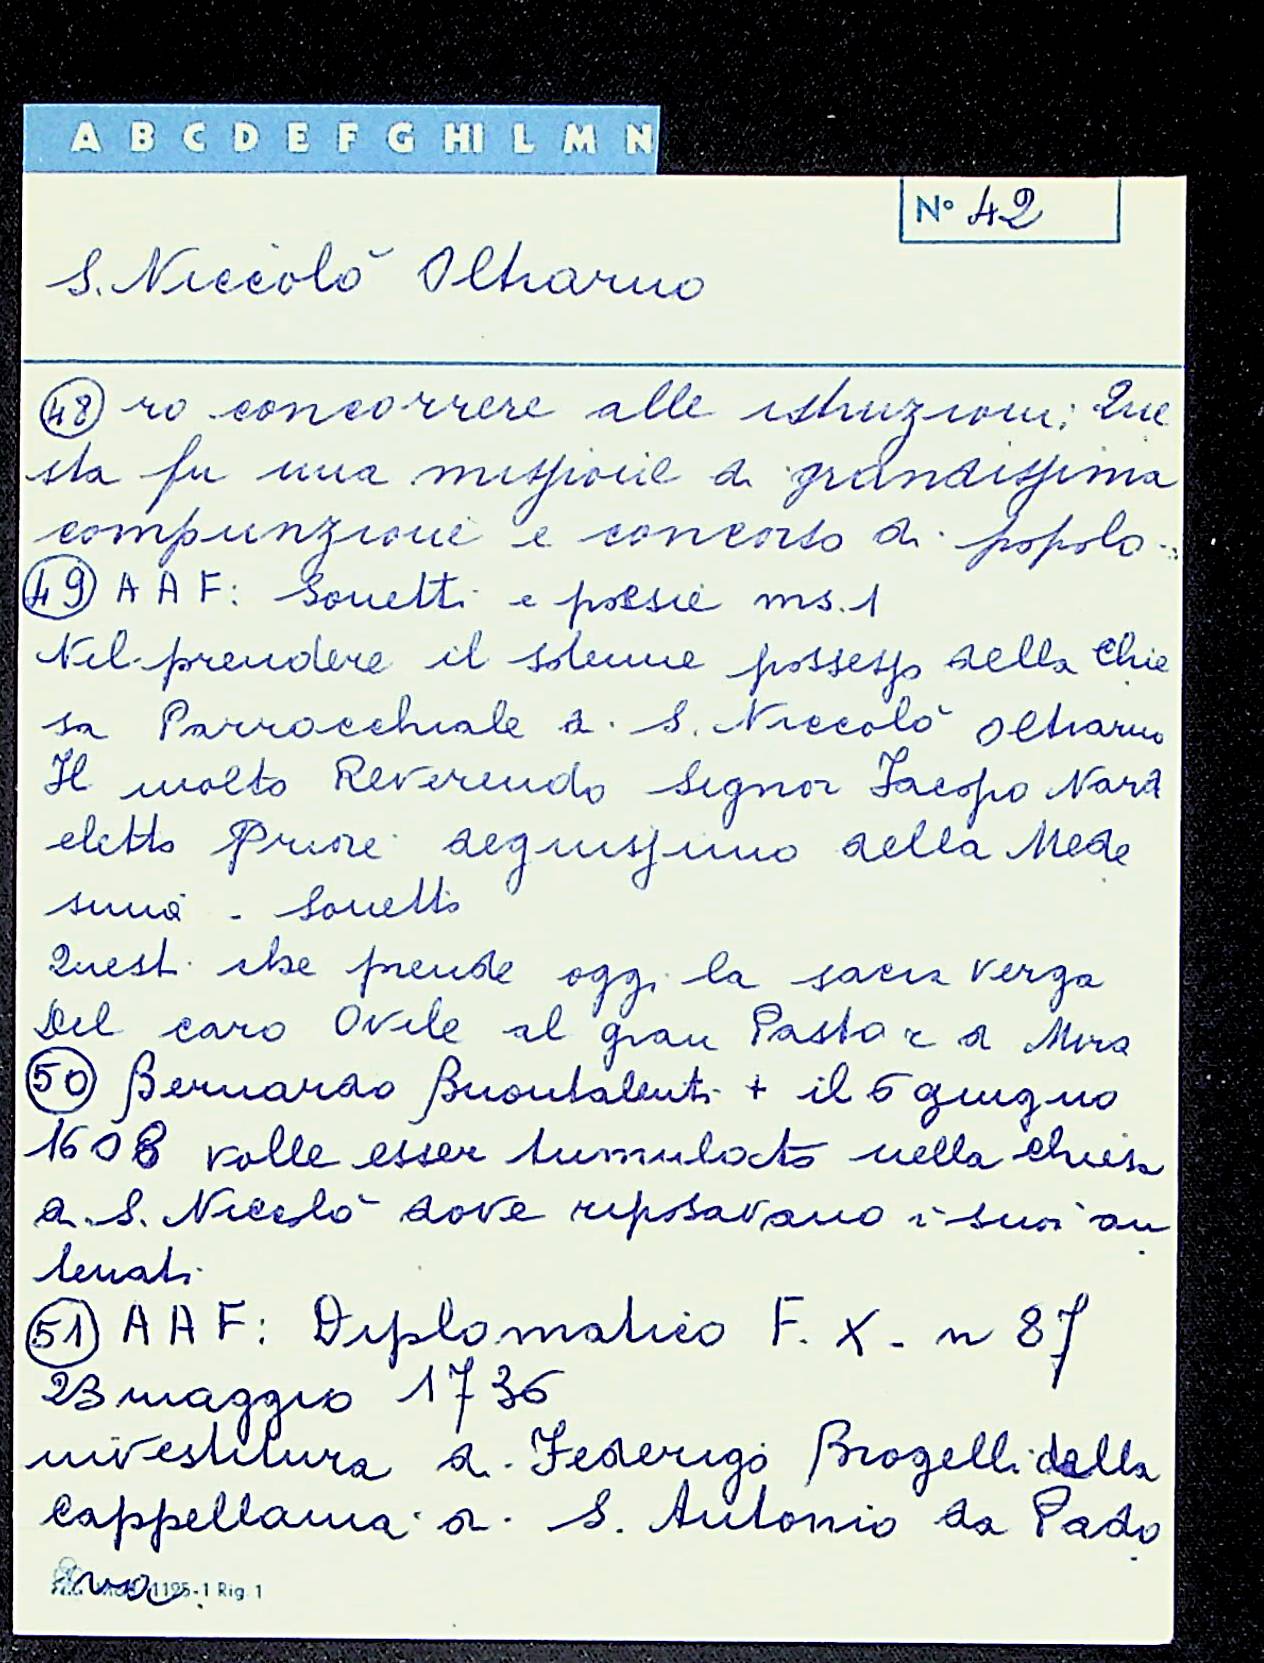 A B C D E F G HI L M N
N° 42
S. Niccolò Oltrarno
48 ro concorrere alle istruzioni; Que
sta fu una missione di grandissima
compunzione e concorso di popolo.
49 A A F: Sonetti e poesie ms. 1
Nel prendere il solenne possesso della Chie
sa Parrocchiale di S. Niccolò Oltrarno
Il molto Reverendo Signor Jacopo Nardi
eletto Priore degnissimo della Mede
sima - Sonetto
Questi che prende oggi la sacra verga
Del caro Ovile al gran Pastor di Mira
50 Bernardo Buontalenti + il 6 giugno
1608 volle esser tumulato nella chiesa
di S. Niccolò dove riposavano i suoi an
tenati
51 A A F: Diplomatico F. X - n 87
23 maggio 1736
investitura di Federigo Brogelli della
cappellania di S. Antonio da Pado
va.
1195-1 Rig. 1